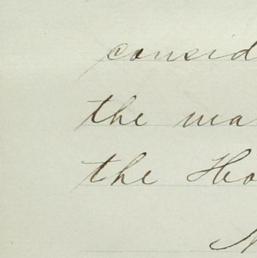 consid
the ma
the Ho